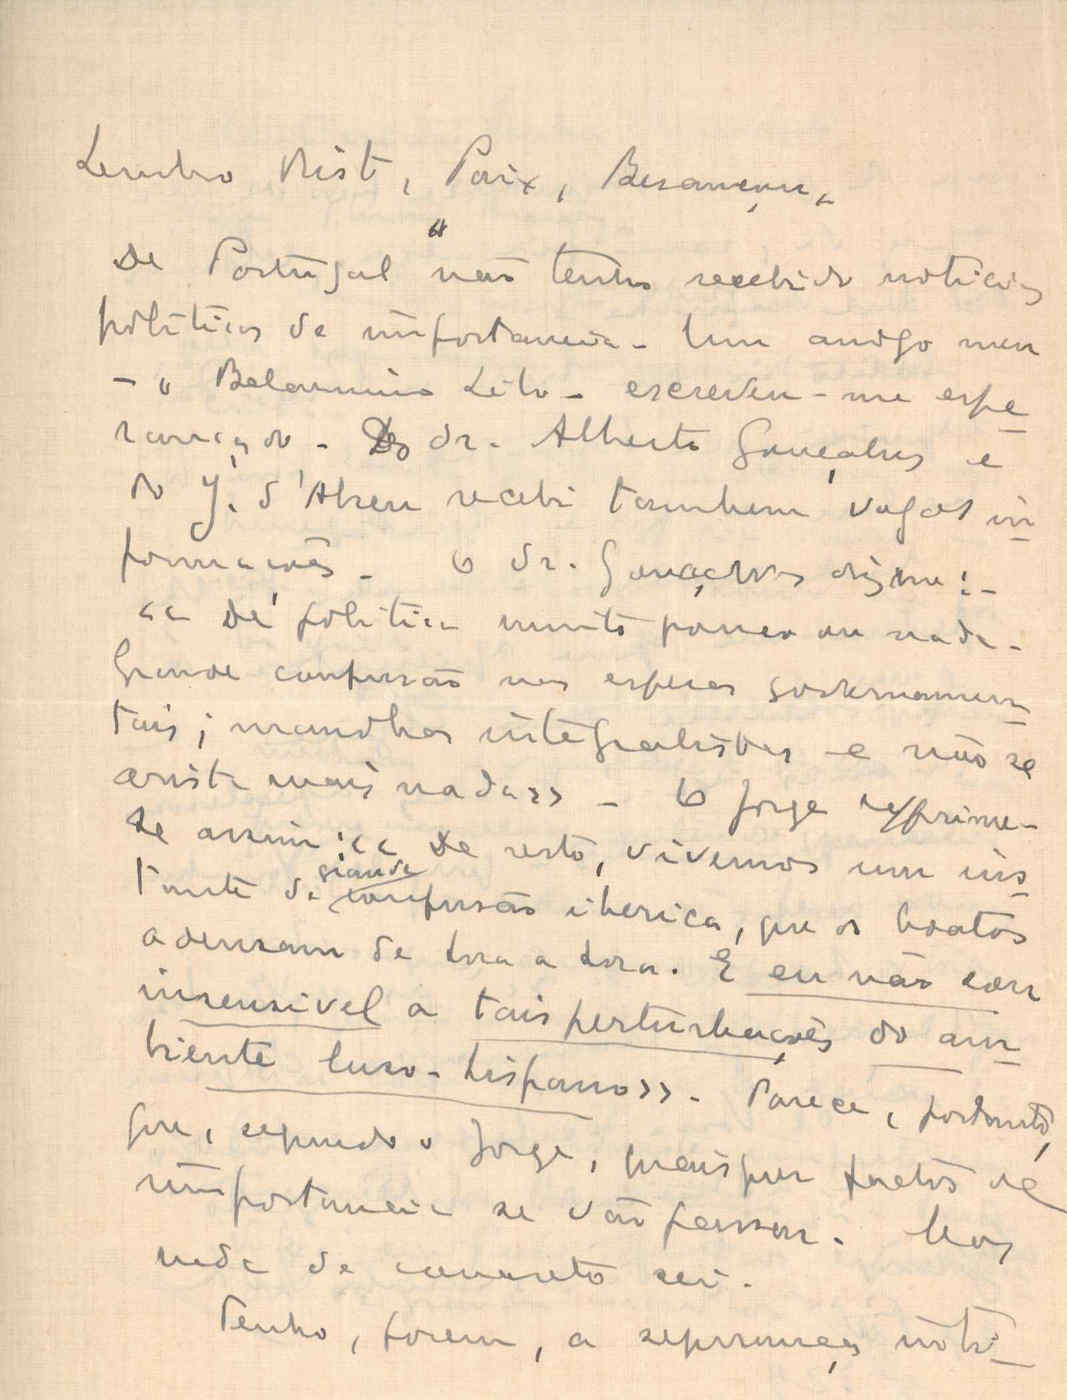 Lembro Rist, Paix, Besançon,
De Portugal não tenho recebido noticias
politicas de importancia. Um amigo meu
– o Belarmino Lelo – escreveu-me espe
rançado. Do dr. Alberto Gonçalves e
do J. d'Abreu recebi tambem vagas in
formações. O dr. Gonçalves diz-me:-
«De politica muito pouco ou nada.
Grande confusão nas esferas governamen
tais; manobras integralistas e não se
avista mais nada». O Jorge exprime-
se assim: «De resto, vivemos um ins
tante de grande confusão iberica, que os boatos
adensam de hora a hora. E eu não sou
insensivel a tais perturbações do am
biente luso-hispano». Parece, portanto,
que, segundo o Jorge, quaisquer factos de
importancia se vão passar. Mas
nada de concreto sei.
Tenho, porem, a segurança noti